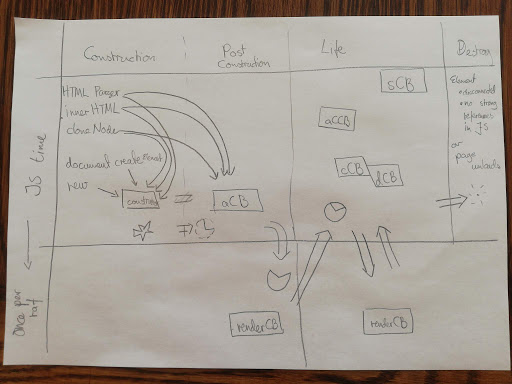 Construction
Post
Construction
Life
Destroy
HTML Parser
innerHTML
cloneNode
document.createElement
new
constructor
aCB
sCB
aCCB
cCB
dCB
Element
disconnected
no strong
references
in JS
or
page
unloads
JS time
Once per
raf
renderCB
renderCB